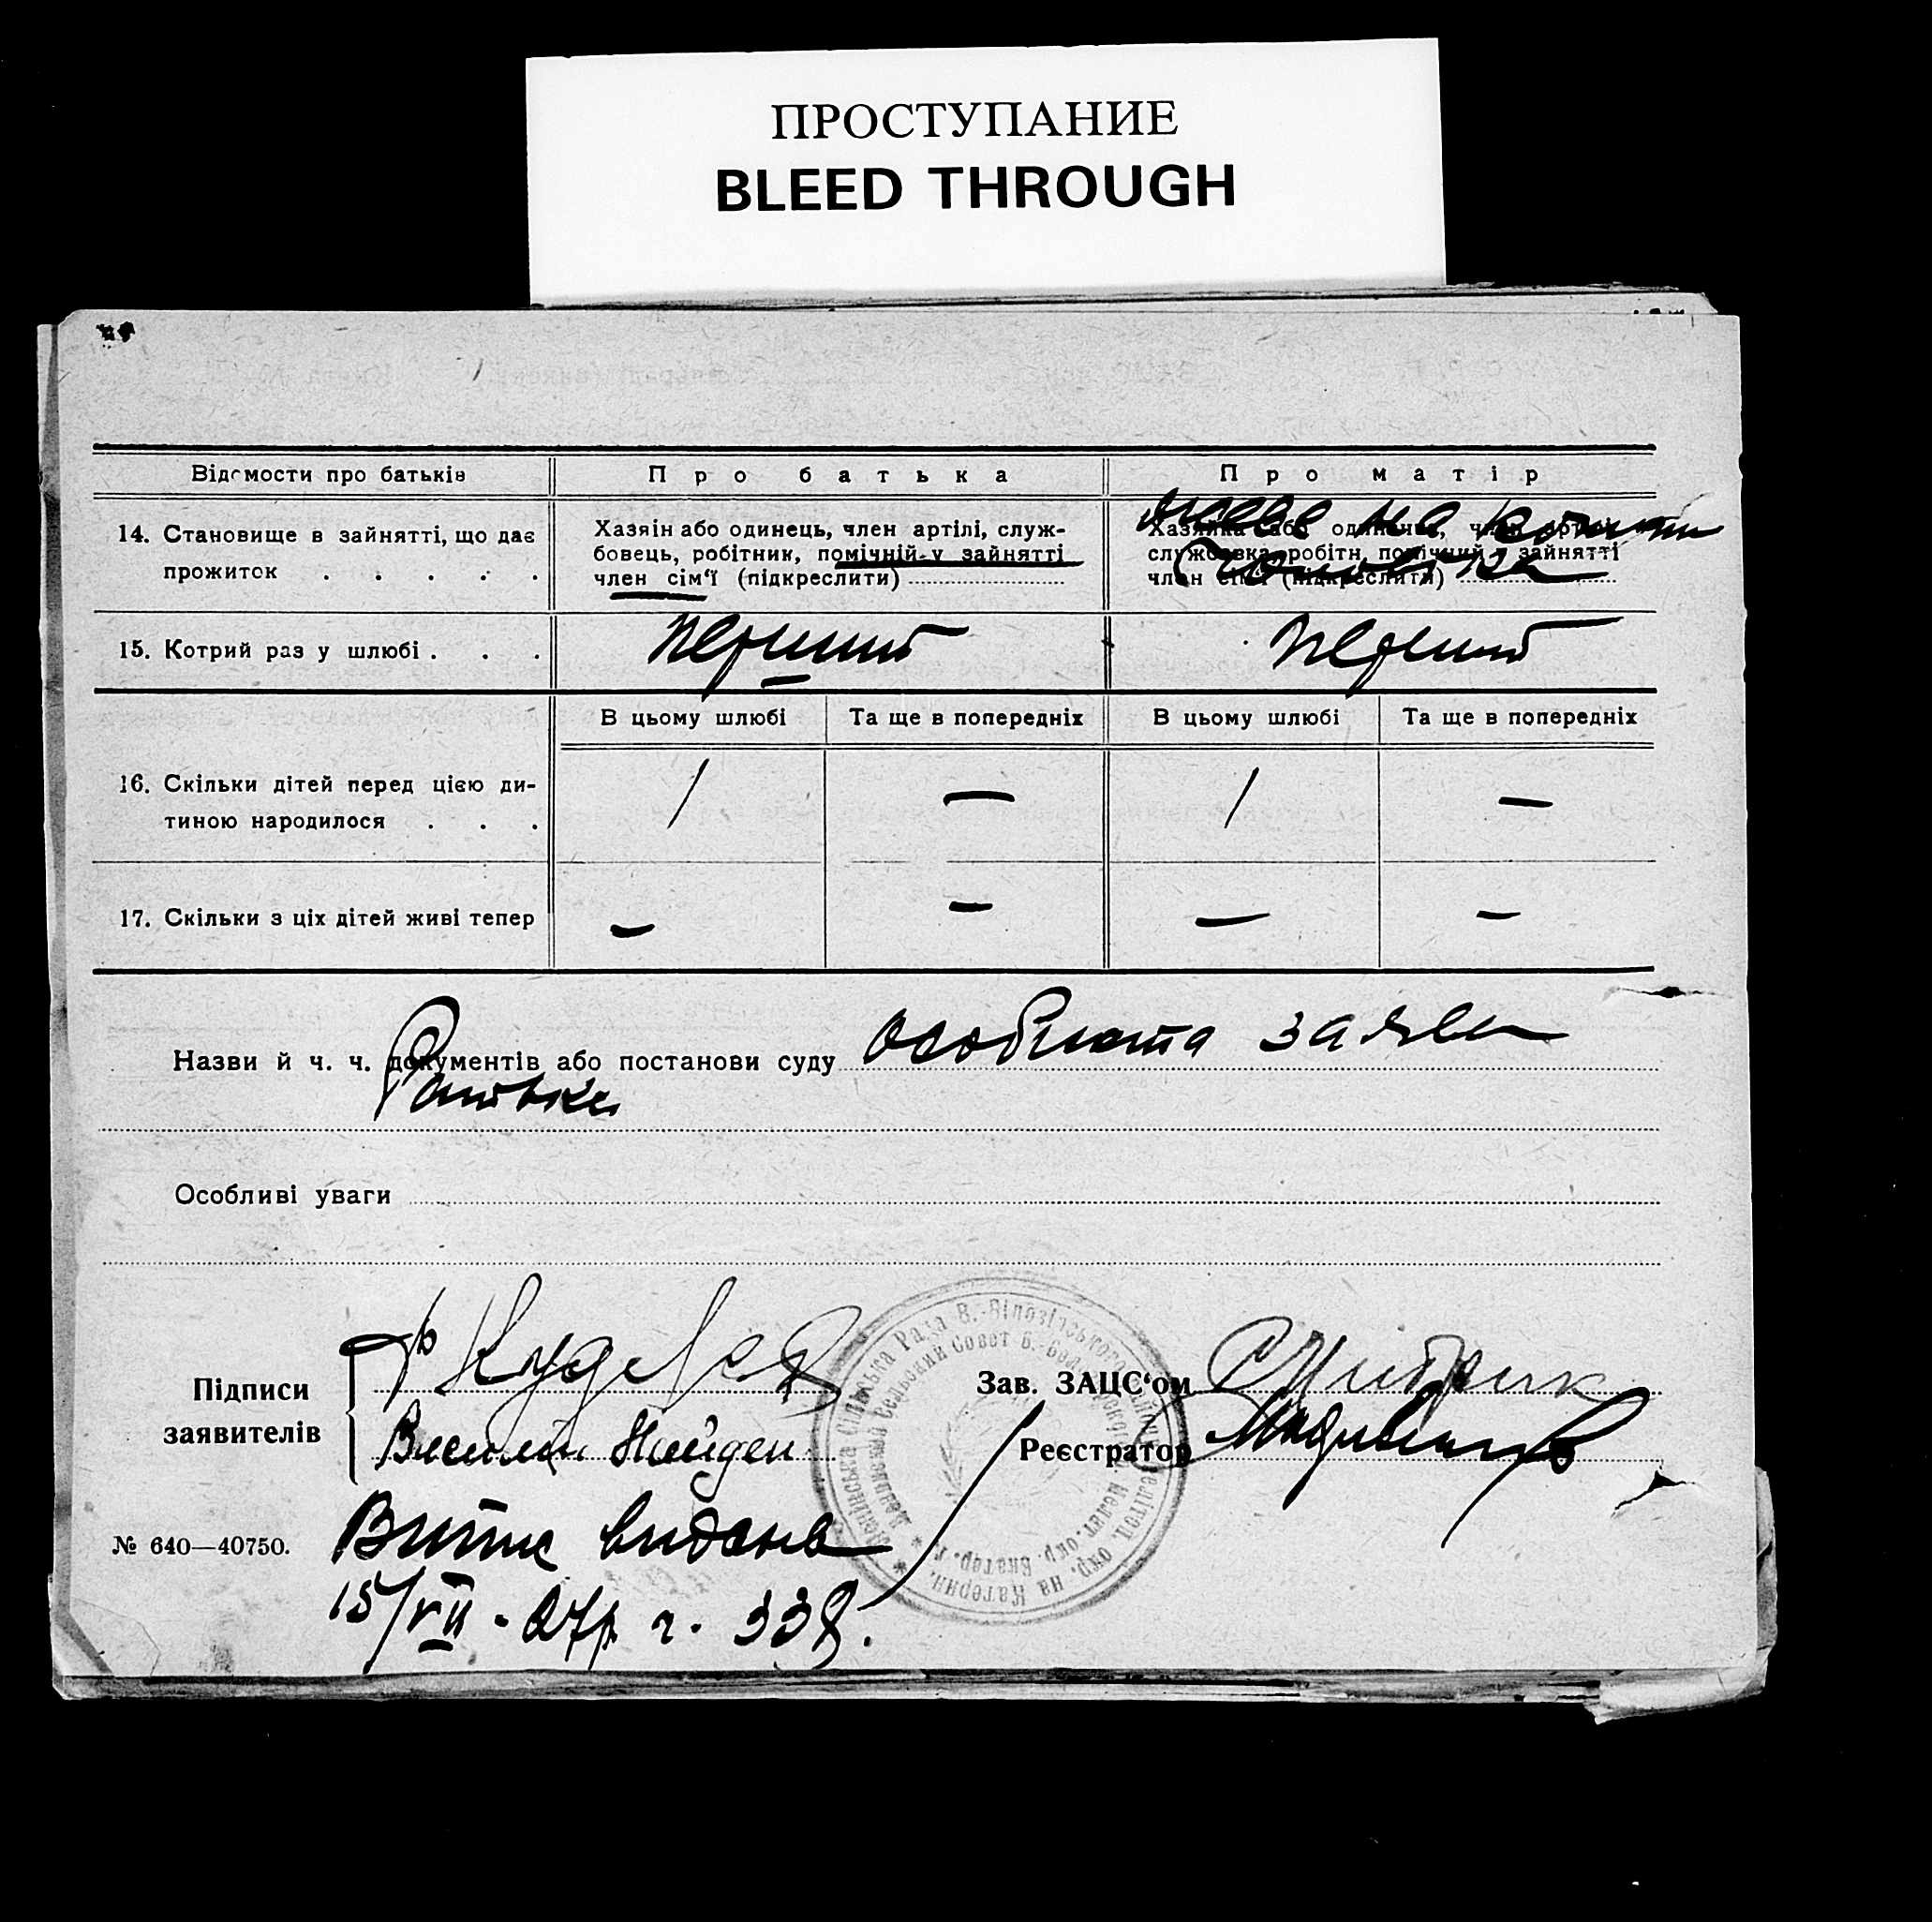 ПРОСТУПАНИЕ
BLEED THROUGH
Відомости про батьків
Про батька
Про матір
14. Становище в зайнятті, що дає
прожиток . . . . .
Хазяін або одинець, член артілі, служ-
бовець, робітник, помічній у зайнятті
член сім'ї (підкреслити)
живе на кошти
Хазяйка або одиначка, член артілі
службовка, робітн, помічний у зайнятті
член сім'ї (підкреслити)
чоловіка
15. Котрий раз у шлюбі . . .
перший
перший
В цьому шлюбі
Та ще в попередніх
В цьому шлюбі
Та ще в попередніх
16. Скільки дітей перед цією ди-
тиною народилося . . .
1
—
1
—
17. Скільки з ціх дітей живі тепер
—
—
—
—
Назви й ч. ч. документів або постанови суду особиста заява
батька
Особливі уваги
Підписи
заявителів
Зав. ЗАЦС'ом
Реєстратор
Василь Найден
№ 640—40750.
Витяг видано
15/VII - 27р. г. 338.